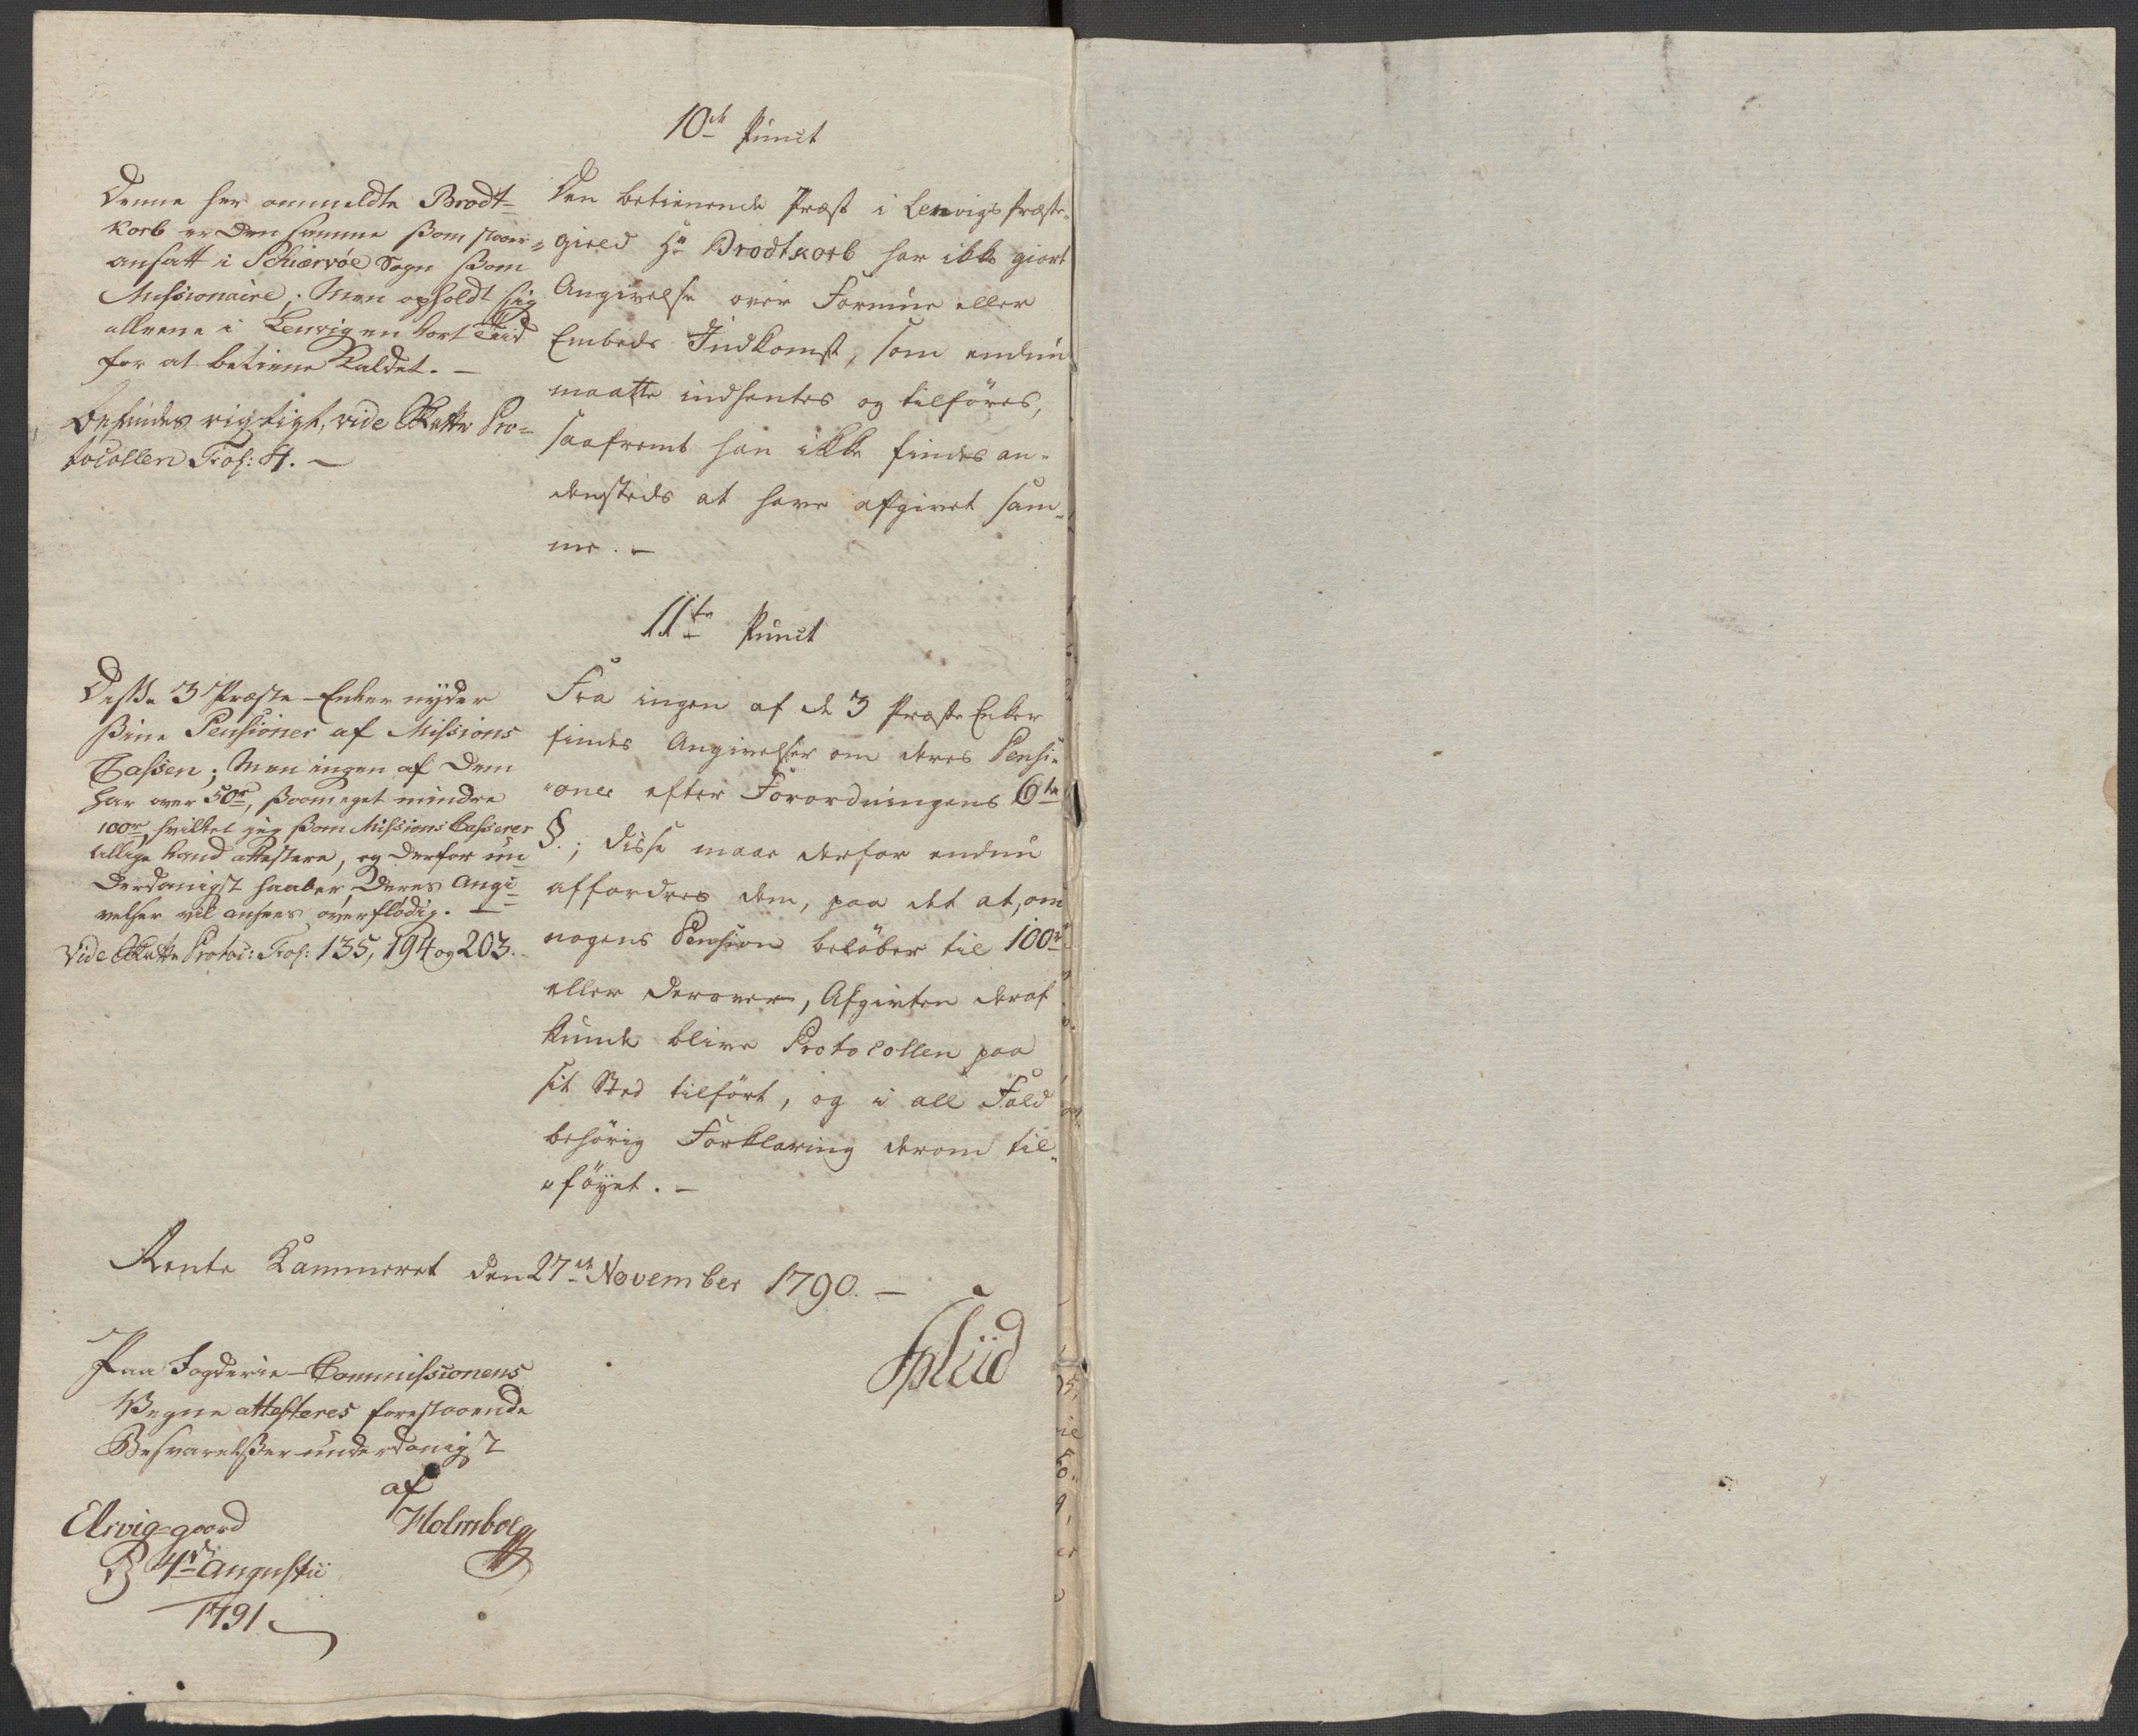 10de Punct
Denne her anmeldte Brodt=
korb er den samme som staaer
ansatt i Schiærvöe Sogn som
Missionaire; Men opholdt sig
alleene i Lenvig en kort Tiid
for at betiene Kaldet. —
Befindes rigtigt, vide Skatte Pro=
tocollen Fol: 4. —
Den betienende Præst i Lenvigs Præste-
gield Hr Brodtkorb har ikke giort
Angivelse over Formue eller
Embeds Indkomst, som endnu
maatte indhentes og tilföres,
saafremt han ikke findes an-
densteds at have afgivet sam-
me. —
11te Punct
Disse 3 Præste-Enker nyder
sine Pensioner af Missions
Cassen; Men ingen af dem
har over 50r, saa meget mindre
100r, hvilket jeg som Missions Casserer
tillige kand attestere, og derfor un-
derdanigst haaber, deres Angi-
velser vil ansees overflödig. —
Vide Skatte Protoc: Fol: 135, 194 og 203.
Fra ingen af de 3 Præste Enker
findes Angivelser om deres Pensi-
oner efter Forordningens 6te
§.; disse maae derfor endnu
affordres dem, paa det at, om
nogens Pension belöber til 100r
eller derover, Afgivten deraf
kunde blive Protocollen paa
sit Sted tilfört, og i all Fald
behörig Forklaring derom til-
föyet. —
Rente Kammeret den 27de November 1790. —
Spliid
Paa Fogderie-Commissionens
Vegne attesteres forestaaende
Besvarelser underdanigst
af
Elvig-gaard
Holmboe
D 4de Augustii
1791